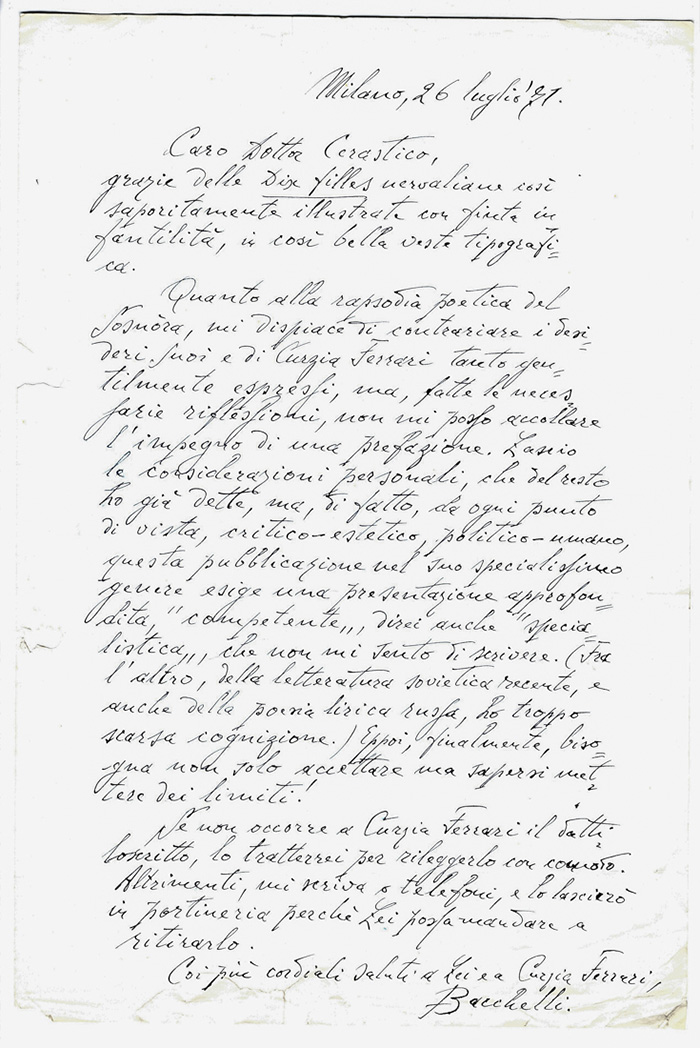 Milano, 26 luglio '71.
Caro Dottor Cerastico,
grazie delle Dix filles nervaliane così
saporitamente illustrate con finta in
fantilità, in così bella veste tipografi=
ca.
Quanto alla rapsodia poetica del
Sosnòra, mi dispiace di contrariare i desi=
deri Suoi e di Curzia Ferrari tanto gen=
tilmente espressi, ma, fatte le neces=
sarie riflessioni, non mi posso accollare
l'impegno di una prefazione. Lascio
le considerazioni personali, che del resto
ho già dette, ma, di fatto, da ogni punto
di vista, critico-estetico, politico-umano,
questa pubblicazione nel suo specialissimo
genere esige una presentazione approfon=
dita, "competente", direi anche "specia=
listica", che non mi sento di scrivere. (Fra
l'altro, della letteratura sovietica recente, e
anche della poesia lirica russa, ho troppo
scarsa cognizione.) Eppoi, finalmente, biso=
gna non solo accettare ma sapersi met=
tere dei limiti!
Se non occorre a Curzia Ferrari il datti=
loscritto, lo tratterrei per rileggerlo con comodo.
Altrimenti, mi scriva o telefoni, e lo lascierò
in portineria perchè Lei possa mandare a
ritirarlo.
Coi più cordiali saluti a Lei e a Curzia Ferrari,
Bacchelli.